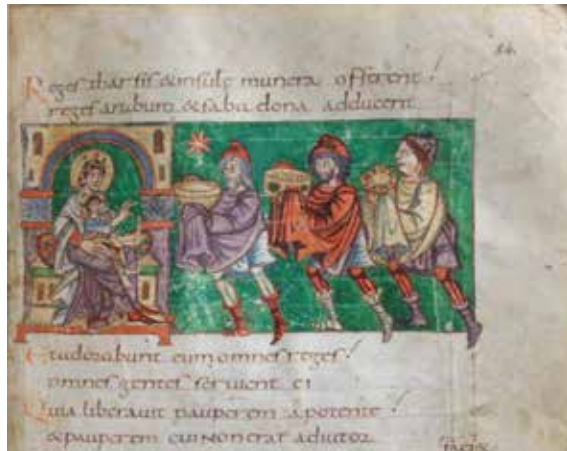 84.
Reges tharsis & insulę munera offerent
reges arabum & saba dona adducent
Et adorabunt eum omnes reges
omnes gentes seruient ei
Quia liberauit pauperem a potente
& pauperem cui non erat adiutor